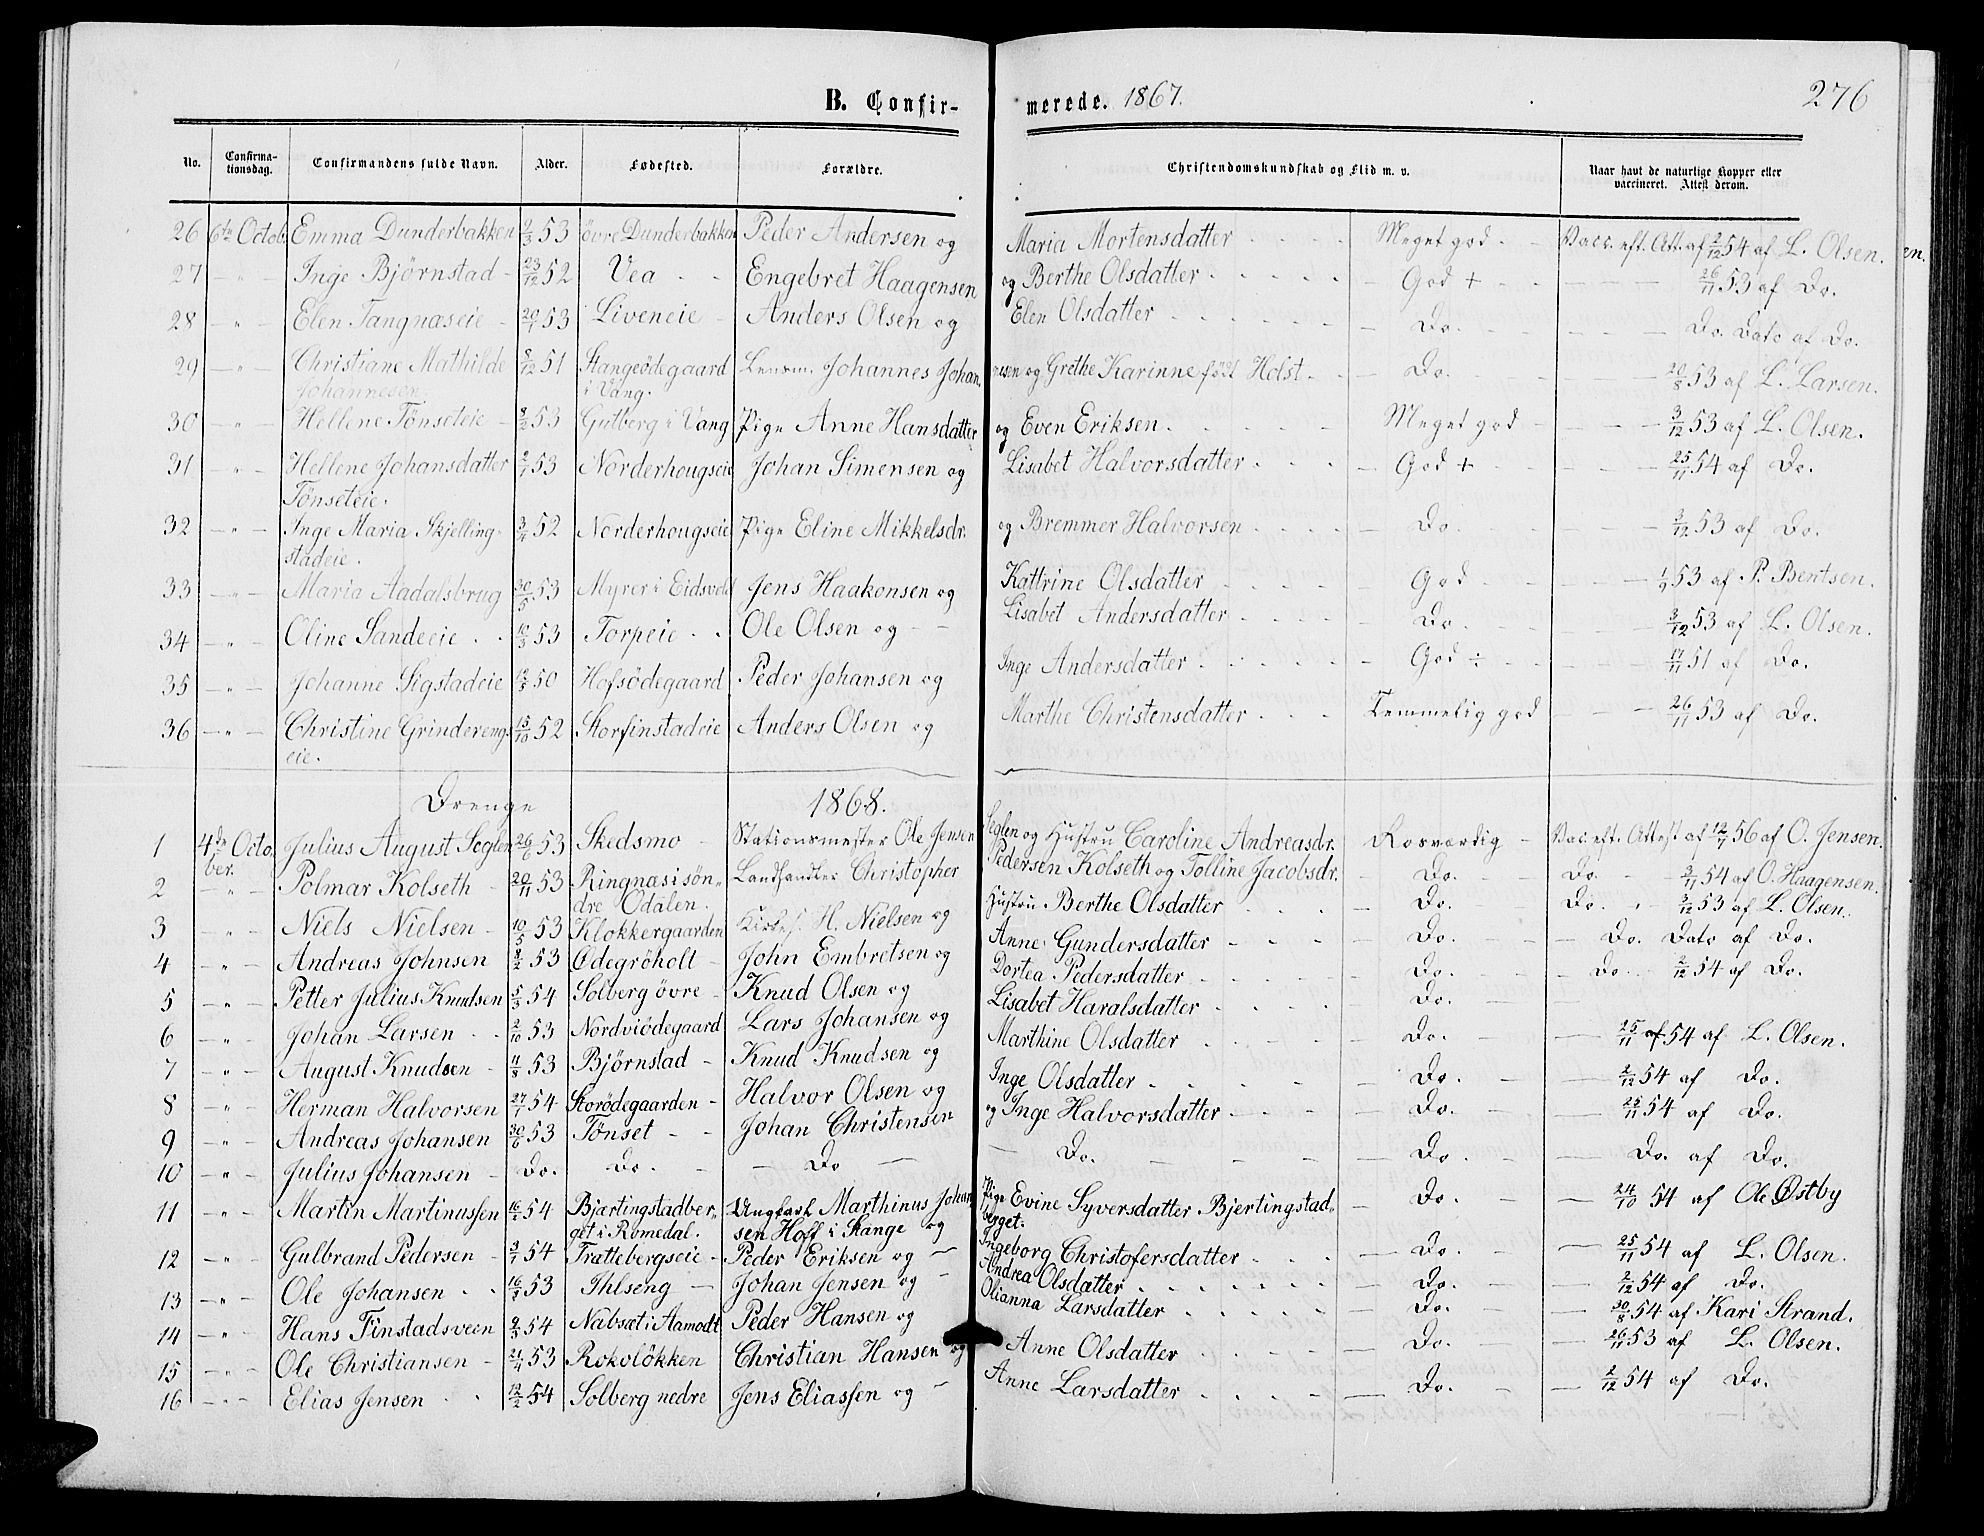 B. Confir- merede. 1867. 276
No. Confirma-tionsdag. Confirmandens fulde Navn. Alder. Fødested. Forældre. Christendomskundskab og Flid m. v. Naar havt de naturlige Kopper eller vaccineret. Attest derom.
26 6te Octob. Emma Dunderbakken 9/3 53 övre Dunderbakken Peder Andersen og Maria Mortensdatter Meget god Vacc. eft. Att. af 2/12 54 af L. Olsen.
27 - " - Inge Bjørnstad 23/12 52 Vea Engebret Haagensen og Berthe Olsdatter God + 26/11 53 af Do.
28 - " - Elen Tangnæseie 20/1 53 Liveneie Anders Olsen og Elen Olsdatter Do. Do. Dato af Do.
29 - " - Christiane Mathilde 8/12 51 Stangeödegaard Lensm. Johannes Johan- nesen og Grethe Karinne född Holst Do. 20/8 53 af L. Larsen.
Johannesen. i Vang.
30 - " - Hellene Tönseteie 8/2 53 Gutberg i Vang Pige Anne Hansdatter og Even Eriksen Meget god 3/12 53 af L. Olsen.
31 - " - Hellene Johansdatter 2/1 53 Norderhougseie Johan Simensen og Lisabet Halvorsdatter God + 25/11 54 af Do.
Tönseteie.
32 - " - Inge Maria Skjelling- 3/4 52 Norderhougseie Pige Eline Mikkelsdr. og Bremmer Halvorsen Do 3/12 53 af Do.
stadeie.
33 - " - Maria Aadalsbrug 30/5 53 Myrer i Eidsvold Jens Haakonsen og Kattrine Olsdatter God 1/9 53 af P. Bentsen.
34 - " - Oline Sandeeie 10/3 53 Torpeie Ole Olsen og Lisabet Andersdatter Do. 3/12 53 af L. Olsen.
35 - " - Johanne Sigstadeie 12/3 50 Hofsödegaard Peder Johansen og Inge Andersdatter God ÷ 17/11 51 af Do.
36 - " - Christine Grinderengs 15/10 52 Storfinstadeie Anders Olsen og Marthe Christensdatter Temmelig god 26/11 53 af Do.
eie.
Drenge 1868.
1 4de Octo- Julius August Seglen 26/6 53 Skedsmo Stationsmester Ole Jensen Seglen og Hustru Caroline Andreasdr. Rosværdig Vac. eft. Attest af 12/7 56 af O. Jensen.
ber.
2 - " - Polmar Kolseth 20/11 53 Ringnæs i søn- Landhandler Christopher Pedersen Kolseth og Tolline Jacobsdr. Do. Do. 3/11 54 af O. Haagensen.
dre Odalen.
3 - " - Niels Nielsen 10/5 53 Klokkergaarden Kirkes. H. Nielsen og Hustru Berthe Olsdatter Do. Do. 3/12 53 af L. Olsen.
4 - " - Andreas Johnsen 8/2 53 Ødegröholt John Embretsen og Anne Gundersdatter Do. Do. Dato af Do.
5 - " - Petter Julius Knudsen 5/3 54 Solberg övre Knud Olsen og Dortea Pedersdatter Do. Do. 2/12 54 af Do.
6 - " - Johan Larsen 2/10 53 Nordviödegaard Lars Johansen og Lisabet Haralsdatter Do.
7 - " - August Knudsen 11/8 53 Bjørnstad Knud Knudsen og Marthine Olsdatter Do. 25/11 af 54 af L. Olsen.
8 - " - Herman Halvorsen 27/1 54 Storödegaarden Halvor Olsen og Inge Olsdatter Do. 2/12 54 af Do.
9 - " - Andreas Johansen 30/6 53 Tönset Johan Christensen og Inge Halvorsdatter Do. 25/11 54 af Do.
10 - " - Julius Johansen Do. Do. Do Do. Do. Do. af Do.
11 - " - Martin Martinussen 16/2 54 Bjærtingstadber- Ungkarl Marthinus Johan- Pige Evine Syversdatter Bjertingstad- Do. 24/10 54 af Ole Østby
get i Romedal. sen Hoff i Stange og berget.
12 - " - Gulbrand Pedersen 3/1 54 Trættebergseie Peder Eriksen og Ingeborg Christofersdatter Do. 25/11 54 af L. Olsen.
13 - " - Ole Johansen 16/8 53 Ihlseng Johan Jensen og Andrea Olsdatter Do. 2/12 54 af Do.
14 - " - Hans Finstadsveen 9/3 54 Nabsæt i Aamodt Peder Hansen og Olianna Larsdatter Do. 30/8 54 af Kari Strand.
15 - " - Ole Christiansen 21/4 53 Rokolökken Christian Hansen og Anne Olsdatter Do. 26/11 53 af L. Olsen.
16 - " - Elias Jensen 12/2 54 Solberg nedre Jens Eliassen og Anne Larsdatter Do. 2/12 54 af Do.